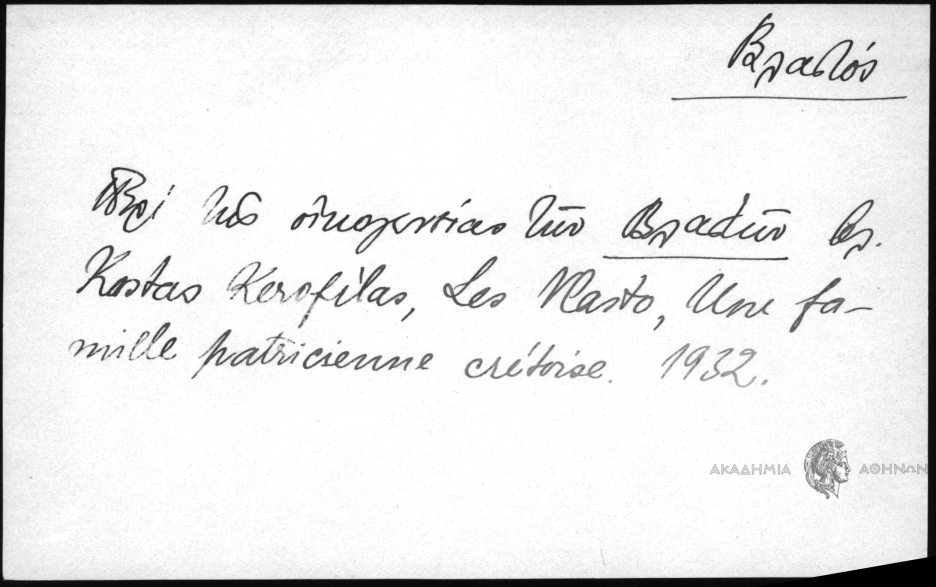 Βλαστός
Περί τῆς οἰκογενείας τῶν Βλαστῶν βλ.
Kostas Kerofilas, Les Vlasto, Une fa-
mille patricienne crétoise. 1932.
ΑΚΑΔΗΜΙΑ ΑΘΗΝΩΝ